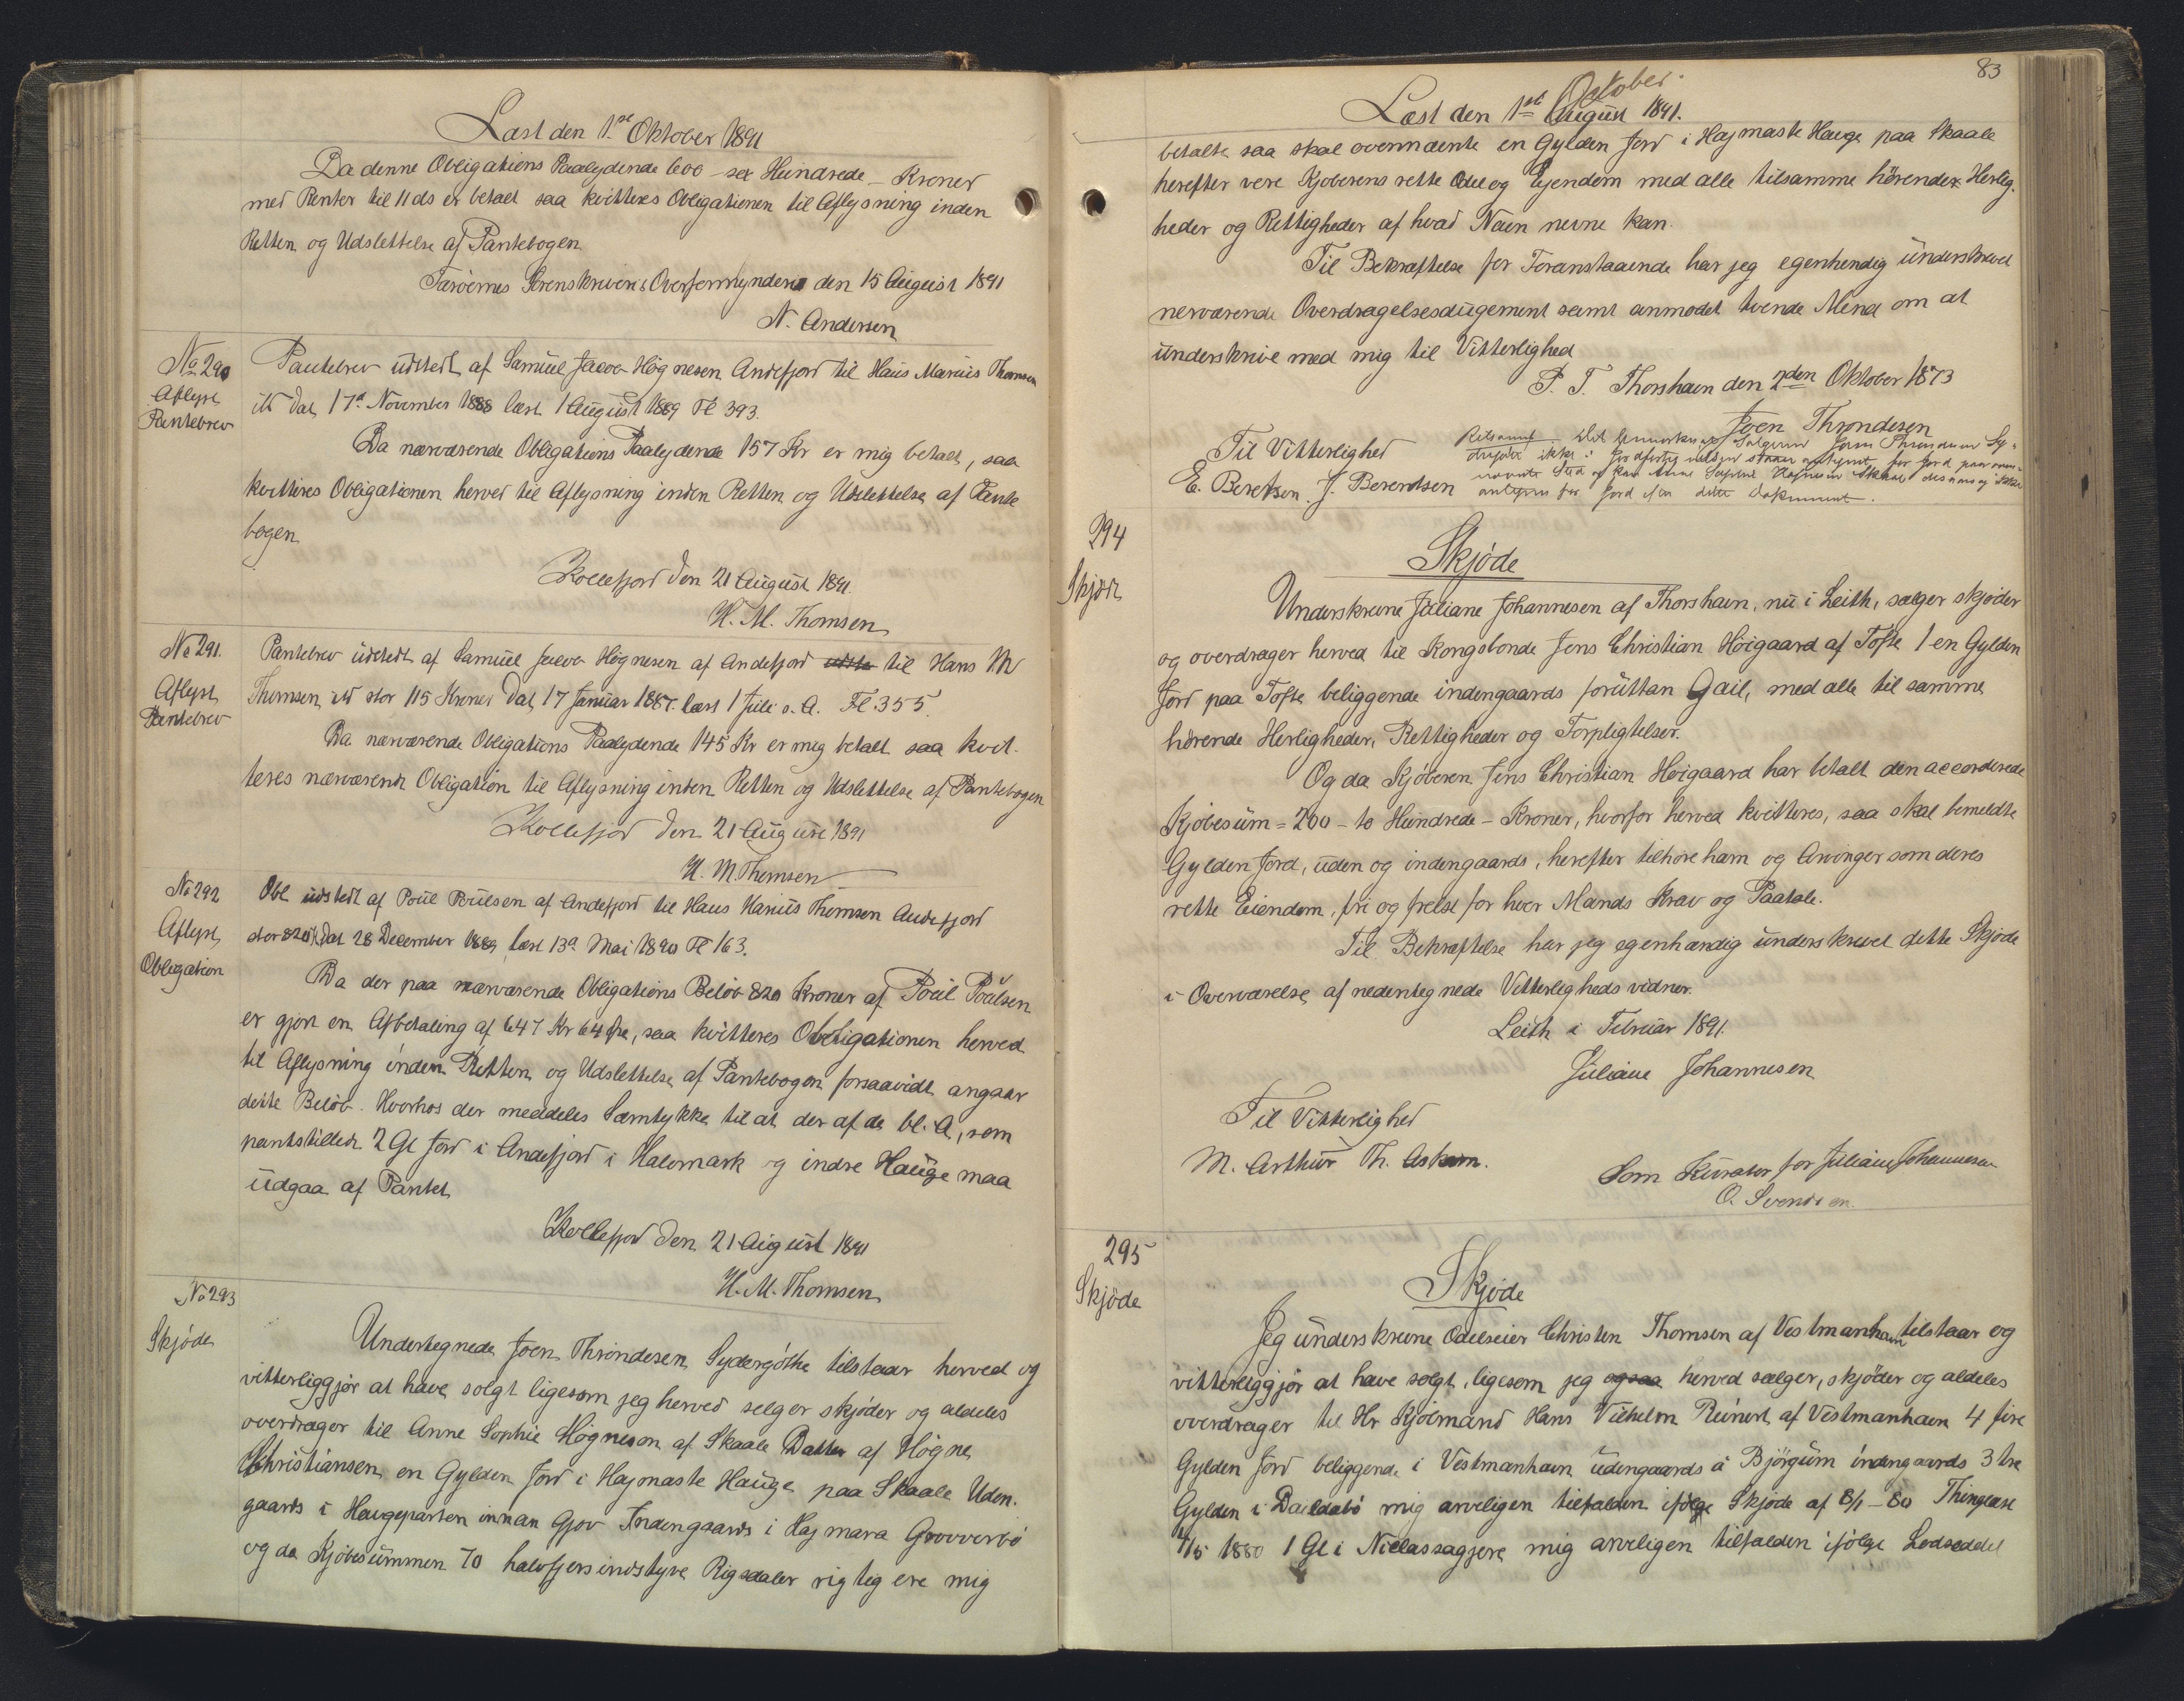 Læst den 1.ste Oktober 1891
Da denne Obligations Paalydende 600 - sex Hundrede - Kroner
med Renter til 11 ds er betalt saa kvitteres Obligationen til Aflysning inden
Retten og Udslettelse af Pantebogen
Færöernes Sorenskriveri & Overformynderi den 15 August 1891
N. Andersen
No 290
Aflyst
Pantebrev
Pantebrev udstedt af Samuel Jacob Högnesen Andefjord til Hans Marius Thomsen
dat 17d November 1888 læst 1 August 1889 Fl 393.
Da nærværende Obligations Paalydende 157 Kr er mig betalt, saa
kvitteres Obligationen herved til Aflysning inden Retten og Udslettelse af Pante
bogen
Kollefjord den 21 August 1891.
H. M. Thomsen
No 291.
Aflyst
Pantebrev
Pantebrev udstedt af Samuel Jacob Högnesen af Andefjord udste til Hans M
Thomsen stor 115 Kroner dat 17 Januar 1887. læst 1 Juli s. A. Fl. 355.
Da nærværende Obligations Paalydende 145 Kr er mig betalt saa kvit-
teres nærværende Obligation til Aflysning inden Retten og Udslettelse af Pantebogen
Kollefjord den 21 August 1891
H. M. Thomsen
No 292
Aflyst
Obligation
Obl udstedt af Poul Poulsen af Andefjord til Hans Marius Thomsen Andefjord
stor 820 Kr dat 28 December 1889 læst 13d Mai 1890 Fl 163.
Da der paa nærværende Obligations Belöb 820 Kroner af Poul Poulsen
er gjort en Afbetaling af 647 Kr 64 Öre, saa kvitteres Obligationen herved
til Aflysning inden Retten og Udslettelse af Pantebogen forsaavidt angaar
dette Belöb. Hvorhos der meddeles Samtykke til at der af de bl. A, som
pantstillede 2 Gl Jord i Andefjord i Halvmark og indre Hauge maa
udgaa af Pantet
Kollefjord den 21 August 1891
H. M. Thomsen
No 293
Skjöde
Undertegnede Joen Thröndesen Sydergöthe tilstaar herved og
vitterliggjör at have solgt ligesom jeg herved selger skjöder og aldeles
overdrager til Anne Sophie Högneson af Skaale Datter af Högne
Christiansen en Gylden Jord i Hajmaste Hauge paa Skaale Uden-
gaards i Haugeparten innan Gjov Indengaards i Hajmara Groovverbö
og da Kjöbesummen 70 halvfjersindstyve Rigsdaler rigtig ere mig
83
October
Læst den 1ste August 1891.
betalte saa skal ovenmeente en Gylden Jord i Hajmaste Hauge paa Skaale
herefter vere Kjoberens rette Odel og Ejendom med alle tilsamme hörender Herlig-
heder og Rettigheder af hvad Naen nevne kan.
Til Bekræftelse for Foranstaaende har jeg egenhendig underskrevet
nerværende Overdragelsesdugement samt anmodet tvende Mend om at
underskrive med mig til Vitterlighed
P. T. Thorshavn den 2den Oktober 1873
Joen Throndesen
Til Vitterlighed
E. Berentsen. J. Berendsen
Retsanm Det bemærkes at Sælgeren Joen Throndesen Sy-
ikke staar antegnet for Jord paa oven-
nævnte Sted og kan Anne Sophie Högnesen Skaale
antegnes for Jord efter dette Dokument.
294
Skjöde
Skjöde
Underskrevne Juliane Johannesen af Thorshavn, nu i Leith, sælger skjöder
og overdrager herved til Kongsbonde Jens Christian Höigaard af Tofte 1 en Gylden
Jord paa Tofte beliggende indengaards foruttan Gail, med alle til samme
hörende Herligheder, Rettigheder og Forpligtelser.
Og da Kjöberen Jens Christian Höigaard har betalt den accorderede
Kjöbesum = 200 - to Hundrede - Kroner, hvorfor herved kvitteres, saa skal bemeldte
Gylden Jord, uden og indengaards, herefter tilhöre ham og Arvinger som deres
rette Eiendom, fri og frelst for hver Mands Krav og Paatale.
Til Bekræftelse har jeg egenhændig underskrevet dette Skjöde
i Overværelse af nedentegnede Vitterligheds vidner.
Leith i Februar 1891.
Juliane Johannesen
Til Vitterlighed
M. Arthur Th. Askam.
Som Kurator for Juliane Johannesen
O. Svendsen.
295
Skjöde
Skjöde
Jeg underskrevne Odelseier Christen Thomsen af Vestmanhavn tilstaar og
vitterliggjör at have solgt, ligesom jeg ogsaa herved sælger, skjöder og aldeles
overdrager til Hr Kjölmand Hans Vilhelm Reinert af Vestmanhaen 4 fire
Gylden Jord beliggende i Vestmanhavn udengaards á Björgum indengaards 3 tre
Gylden i Dalldabö mig arveligen tilfalden ifölge Skjöde af 8/1 - 80 Thinglæst
4/5 1880 1 Gl i Niclassagjere mig arveligen tilfalden ifölge Lodseddel